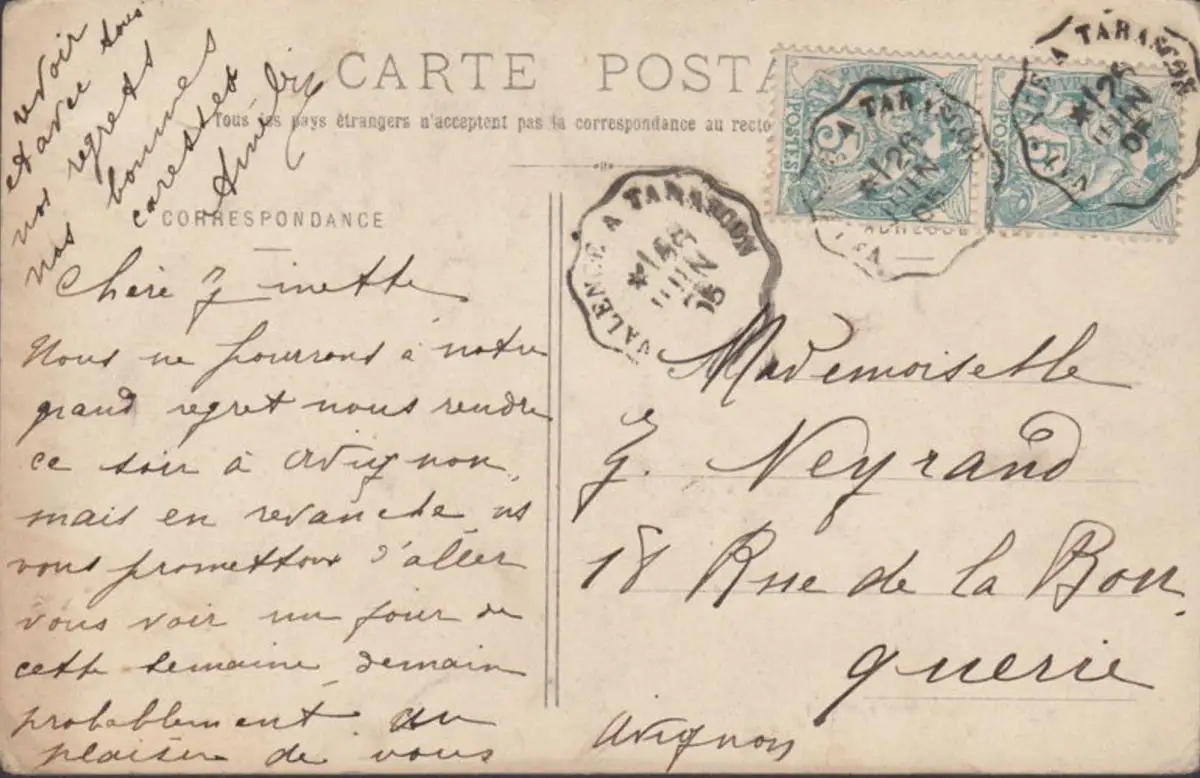 CARTE POSTA
Tous les pays étrangers n'acceptent pas la correspondance au recto
CORRESPONDANCE
Chère Zinette
Nous ne pourrons à notre
grand regret nous rendre
ce soir à Avignon,
mais en revanche ns
vous promettons d'aller
vous voir un jour de
cette semaine demain
probablement Au
plaisir de vous
revoir
et avec tous
nos regrets
nos bonnes
caresses
ADRESSE
Mademoiselle
G. Neyrand
18 Rue de la Bon
querie
Avignon
VALENCE A TARASCON
JUIN
05
A TARASCON
26
JUIN
05
5
POSTES
A TARASCON
JUIN
05
5
POSTES